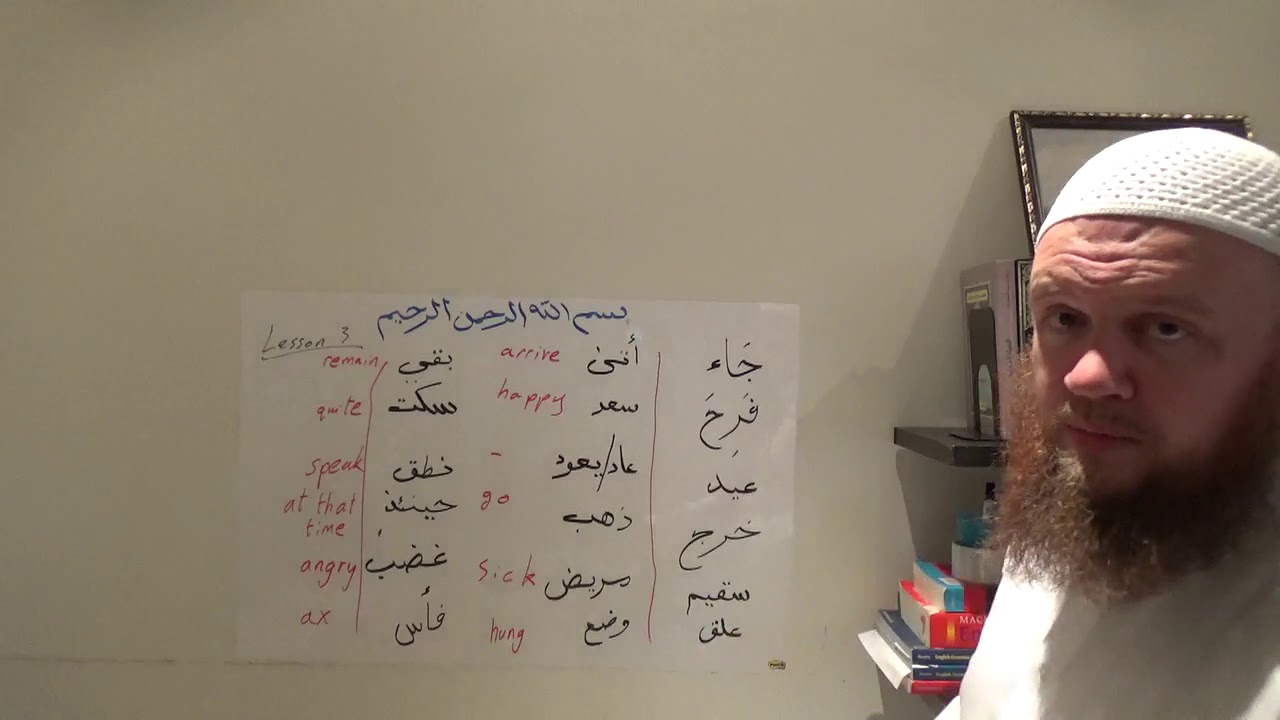 بسم الله الرحمن الرحيم
Lesson 3
جَاء أتى arrive بقي remain
فَرِحَ سعد happy سكت quite
عيد عاد/يعود - نطق speak
خرج ذهب go حينئذ at that time
سقيم مريض sick غضب angry
علق وضع hung فأس ax